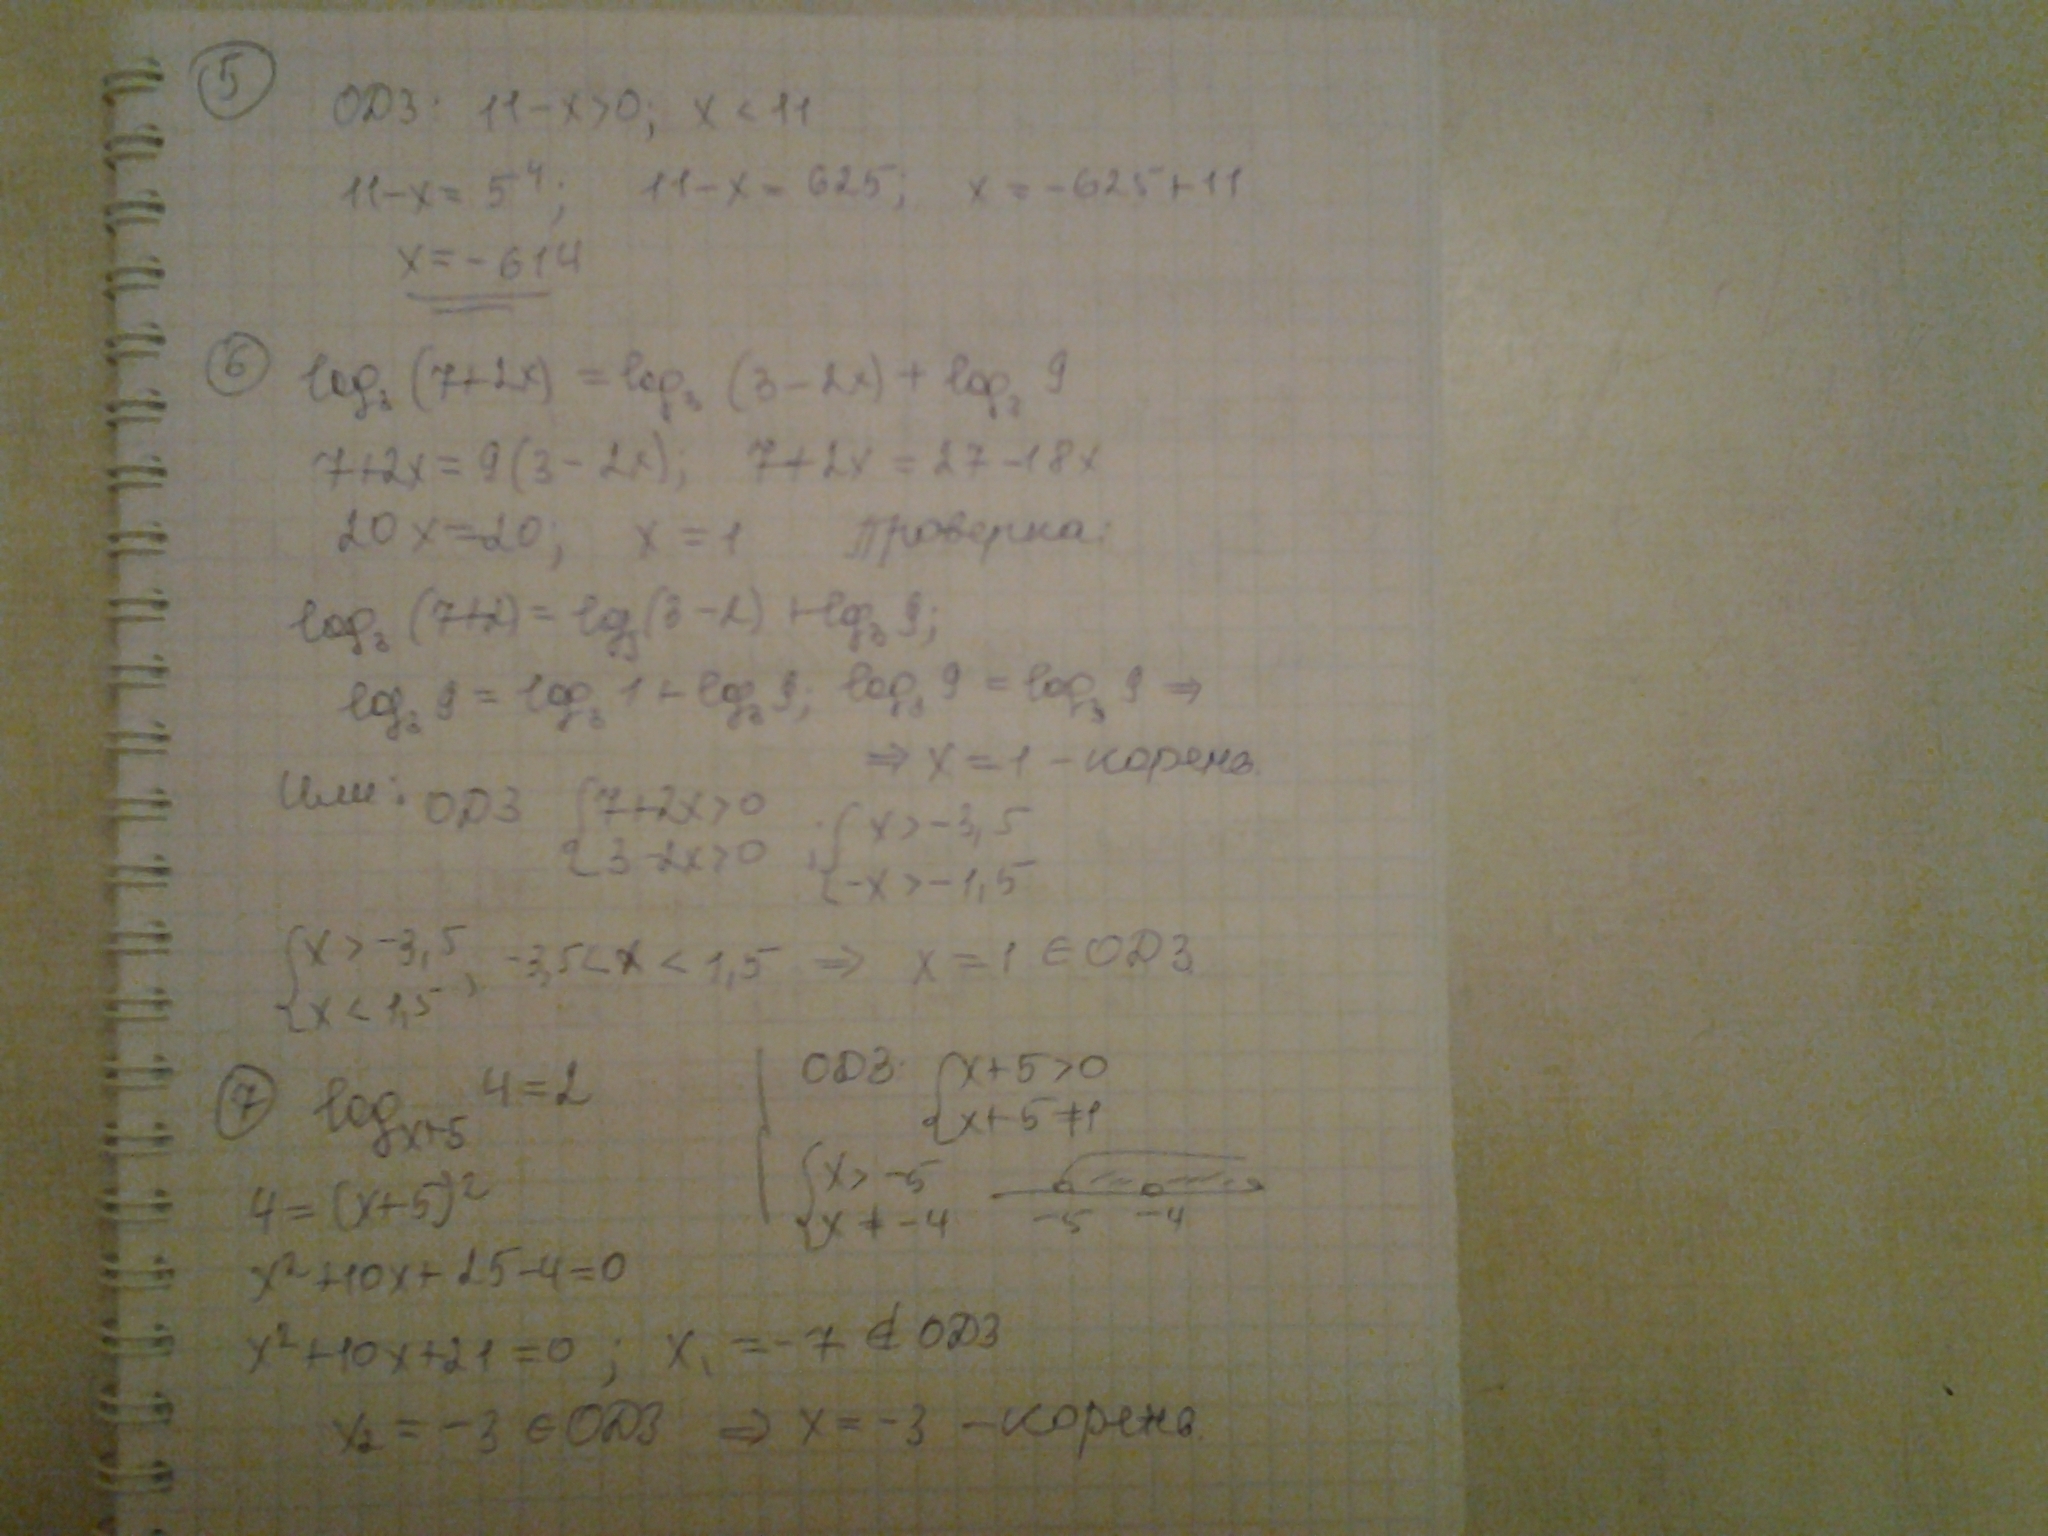 5
ОДЗ: 11-x>0; x<11
11-x=5⁴; 11-x=625; x=-625+11
x=-614
6 log₃(7+2x)=log₃(3-2x)+log₃9
7+2x=9(3-2x); 7+2x=27-18x
20x=20; x=1 Проверка:
log₃(7+2)=log₃(3-2)+log₃9;
log₃9=log₃1+log₃9; log₃9=log₃9⇒
⇒x=1-корень
Или: ОДЗ {7+2x>0 ; {x>-3,5
{3-2x>0 {-x>-1,5
{x>-3,5 , -3,5<x<1,5 ⇒ x=1∈ОДЗ
{x<1,5
7 logₓ₊₅4=2 | ОДЗ: {x+5>0
{x+5≠1
4=(x+5)² {x>-5
{x≠-4 -5 -4
x²+10x+25-4=0
x²+10x+21=0; x₁=-7∉ОДЗ
x₂=-3∈ОДЗ ⇒ x=-3 -корень